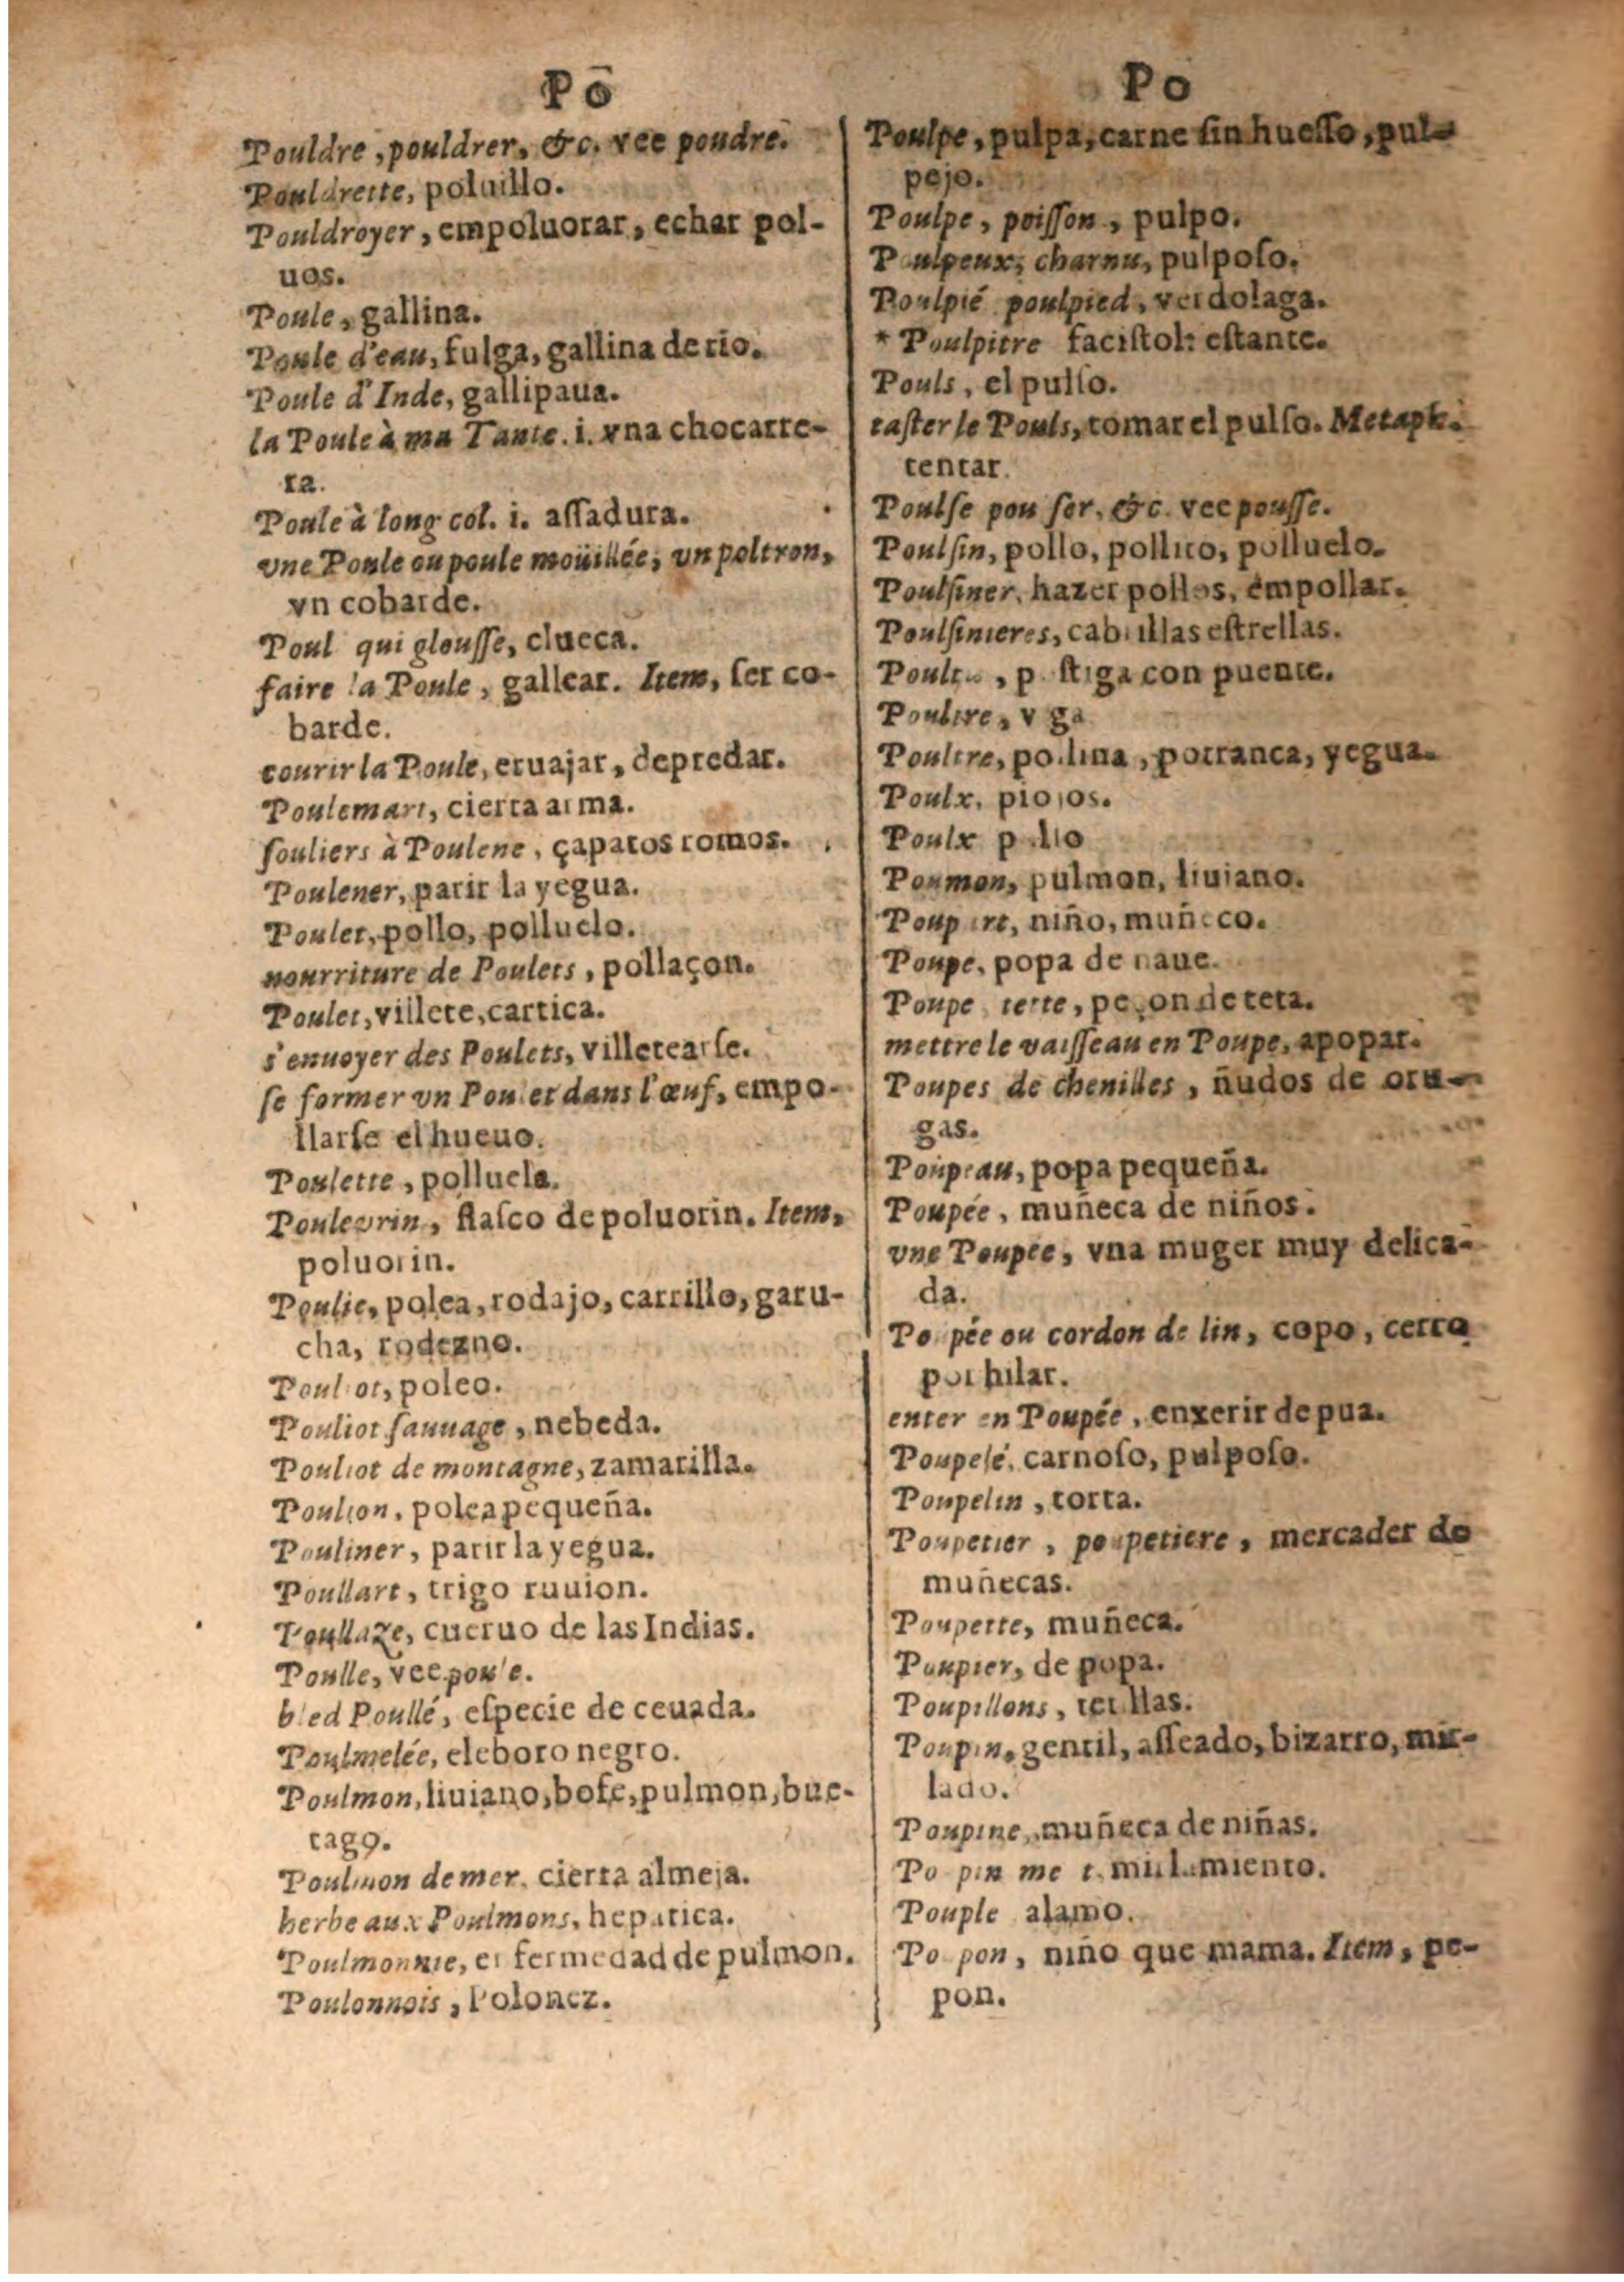 Pō
Pouldre, pouldrer, &c. vee poudre.
Pouldrette, poluillo.
Pouldroyer, empoluorar, echar pol-
uos.
Poule, gallina.
Poule d'eau, fulga, gallina de rio.
Poule d'Inde, gallipaua.
la Poule à ma Tante. i. vna chocarre-
ra.
Poule à long col. i. aſſadura.
vne Poule ou poule moüillée, vn poltron,
vn cobarde.
Poul qui glouſſe, clueca.
faire la Poule, gallear. Item, ſer co-
barde.
courir la Poule, eruajar, depredar.
Poulemart, cierta arma.
ſouliers à Poulene, çapatos romos.
Poulener, parir la yegua.
Poulet, pollo, polluelo.
nourriture de Poulets, pollaçon.
Poulet, villete, cartica.
s'enuoyer des Poulets, villetearſe.
ſe former vn Poulet dans l'œuf, empo-
llarſe el hueuo.
Poulette, polluela.
Poulevrin, flaſco de poluorin. Item,
poluorin.
Poulie, polea, rodajo, carrillo, garu-
cha, rodezno.
Pouliot, poleo.
Pouliot ſauuage, nebeda.
Pouliot de montagne, zamarilla.
Poulion, polea pequeña.
Pouliner, parir la yegua.
Poullart, trigo ruuion.
Poullaze, cueruo de las Indias.
Poulle, vee poule.
bled Poullé, eſpecie de ceuada.
Poulmelée, eleboro negro.
Poulmon, liuiano, bofe, pulmon, bue-
tago.
Poulmon de mer, cierta almeja.
herbe aux Poulmons, hepatica.
Poulmonnie, enfermedad de pulmon.
Poulonnois, Polonez.
Po
Poulpe, pulpa, carne ſin hueſſo, pul-
pejo.
Poulpe, poiſſon, pulpo.
Poulpeux, charnu, pulpoſo.
Poulpié poulpied, verdolaga.
* Poulpitre faciſtol: eſtante.
Pouls, el pulſo.
taſter le Pouls, tomar el pulſo. Metaph.
tentar.
Poulſe pou ſer, &c. vee pouſſe.
Poulſin, pollo, pollito, polluelo.
Poulſiner, hazer pollos, empollar.
Poulſinieres, cabrillas eſtrellas.
con puente.
Poultre, viga
Poultre, pollina, potranca, yegua.
Poulx, piojos.
Poulx
Poumon, pulmon, liuiano.
Poupart, niño, muñeco.
Poupe, popa de naue.
Poupe tette, peçon de teta.
mettre le vaiſſeau en Poupe, apopar.
Poupes de chenilles, ñudos de oru-
gas.
Poupeau, popa pequeña.
Poupée, muñeca de niños.
vne Poupée, vna muger muy delica-
da.
Poupée ou cordon de lin, copo, cerro
por hilar.
enter en Poupée, enxerir de pua.
Poupelé, carnoſo, pulpoſo.
Poupelin, torta.
Poupetier, poupetiere, mercader de
muñecas.
Poupette, muñeca.
Poupier, de popa.
Poupillons, tetillas.
Poupin, gentil, aſſeado, bizarro, mir-
lado.
Poupine, muñeca de niñas.
Poupinement, mirlamiento.
Pouple alamo.
Poupon, niño que mama. Item, pe-
pon.